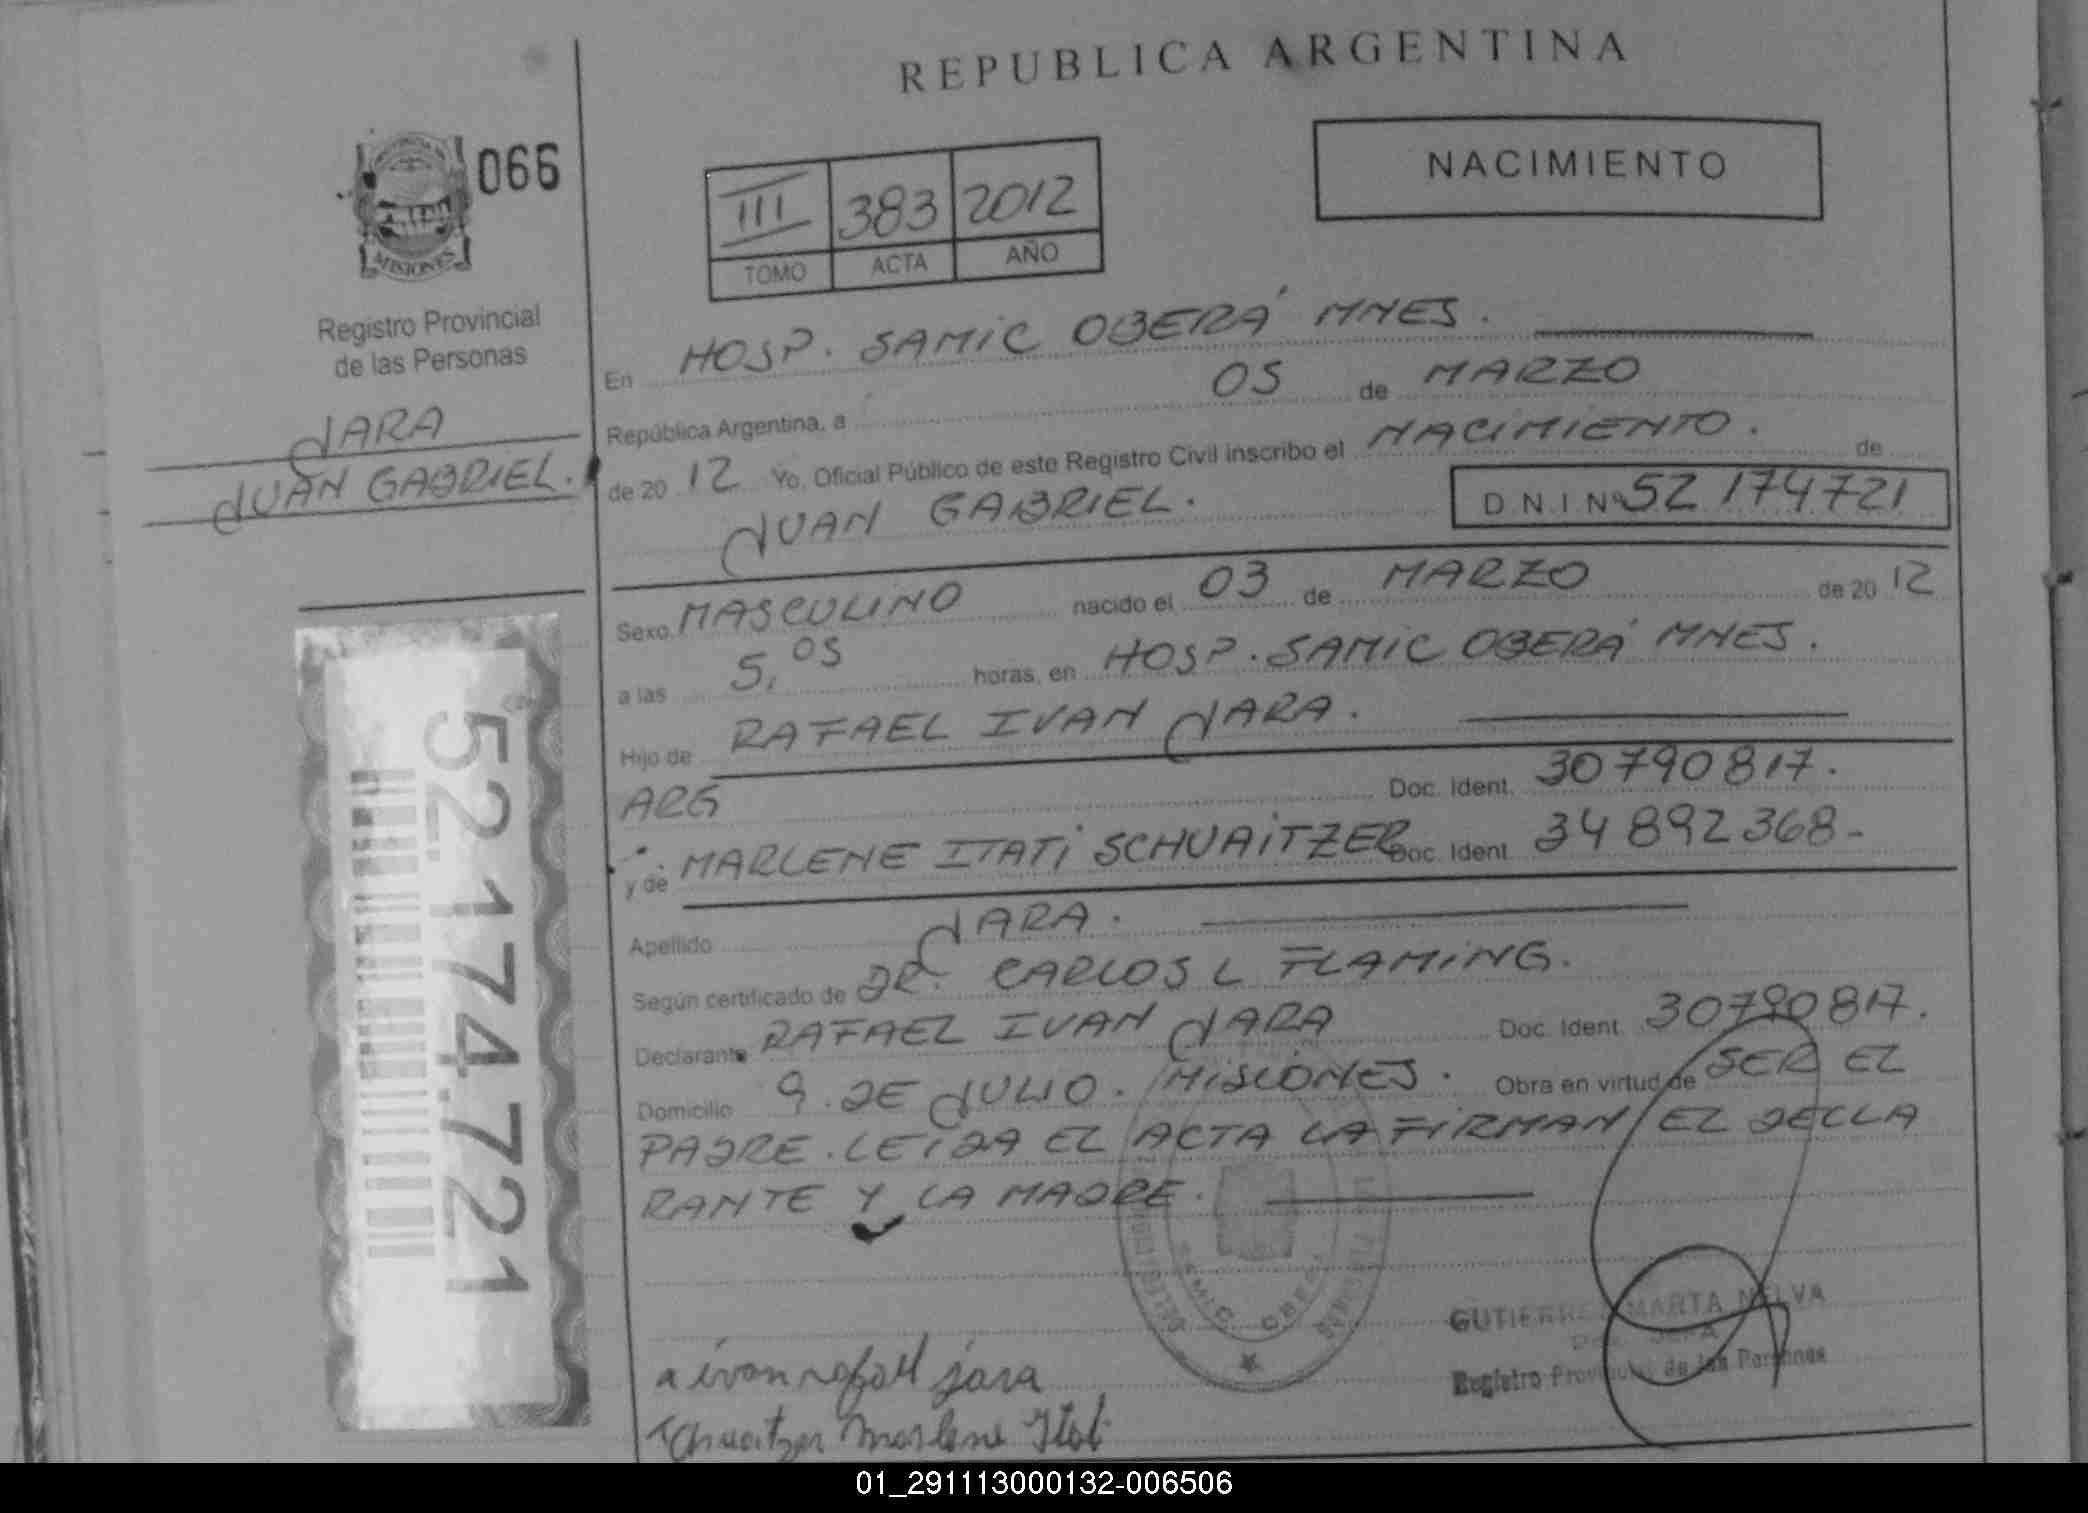 REPUBLICA ARGENTINA
066
NACIMIENTO
III 383 2012
TOMO ACTA AÑO
MISIONES
Registro Provincial
de las Personas
JARA
JUAN GABRIEL.
En HOSP. SAMIC OBERÁ MNES.
República Argentina, a 05 de MARZO
de 20 12 Yo, Oficial Público de este Registro Civil inscribo el NACIMIENTO. de
JUAN GABRIEL. D.N.I Nº 52 174721
Sexo MASCULINO nacido el 03 de MARZO de 20 12
a las 5,05 horas, en HOSP. SAMIC OBERÁ MNES.
Hijo de RAFAEL IVAN JARA.
ARG Doc. Ident. 30790817.
y de MARLENE ITATI SCHUAITZER Doc. Ident. 34 892368-
Apellido JARA.
Según certificado de DR. CARLOS L FLAMING.
Declarante RAFAEL IVAN JARA Doc. Ident. 30790817.
Domicilio 9 DE JULIO. MISIONES. Obra en virtud de SER EL
PADRE. LEIDA EL ACTA LA FIRMAN EL DECLA
RANTE Y LA MADRE.
52.174.721
GUTIERREZ MARTA NELVA
Registro Provincial de las Personas
ivan rafael jara
Schuaitzer Marlene Itati
01_291113000132-006506